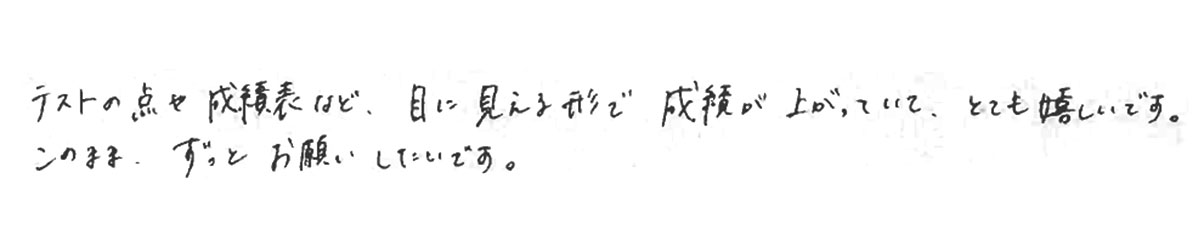 テストの点や成績表など、目に見える形で成績が上がっていて、とても嬉しいです。
このまま、ずっとお願いしたいです。